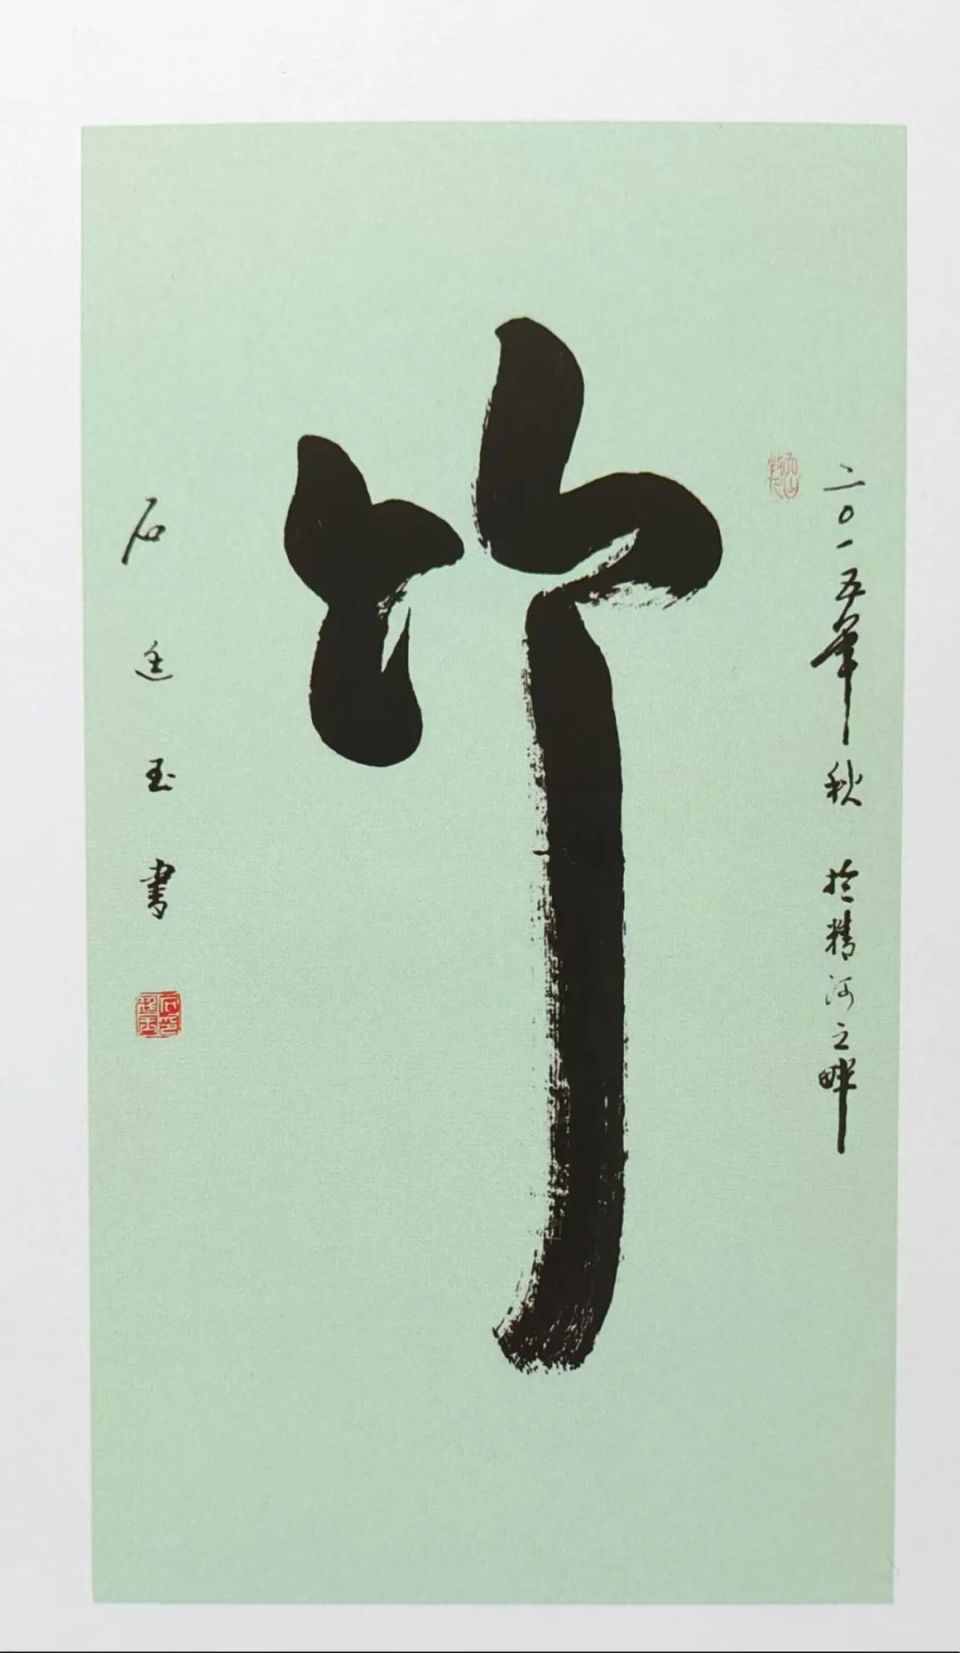 竹
二〇一五年秋 於精河之畔
石廷玉書